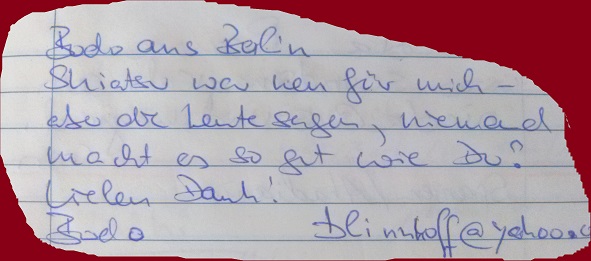 Bodo aus Berlin
Shiatsu war neu für mich –
aber die Leute sagen, niemand
macht es so gut wie Du!
Vielen Dank!
Bodo